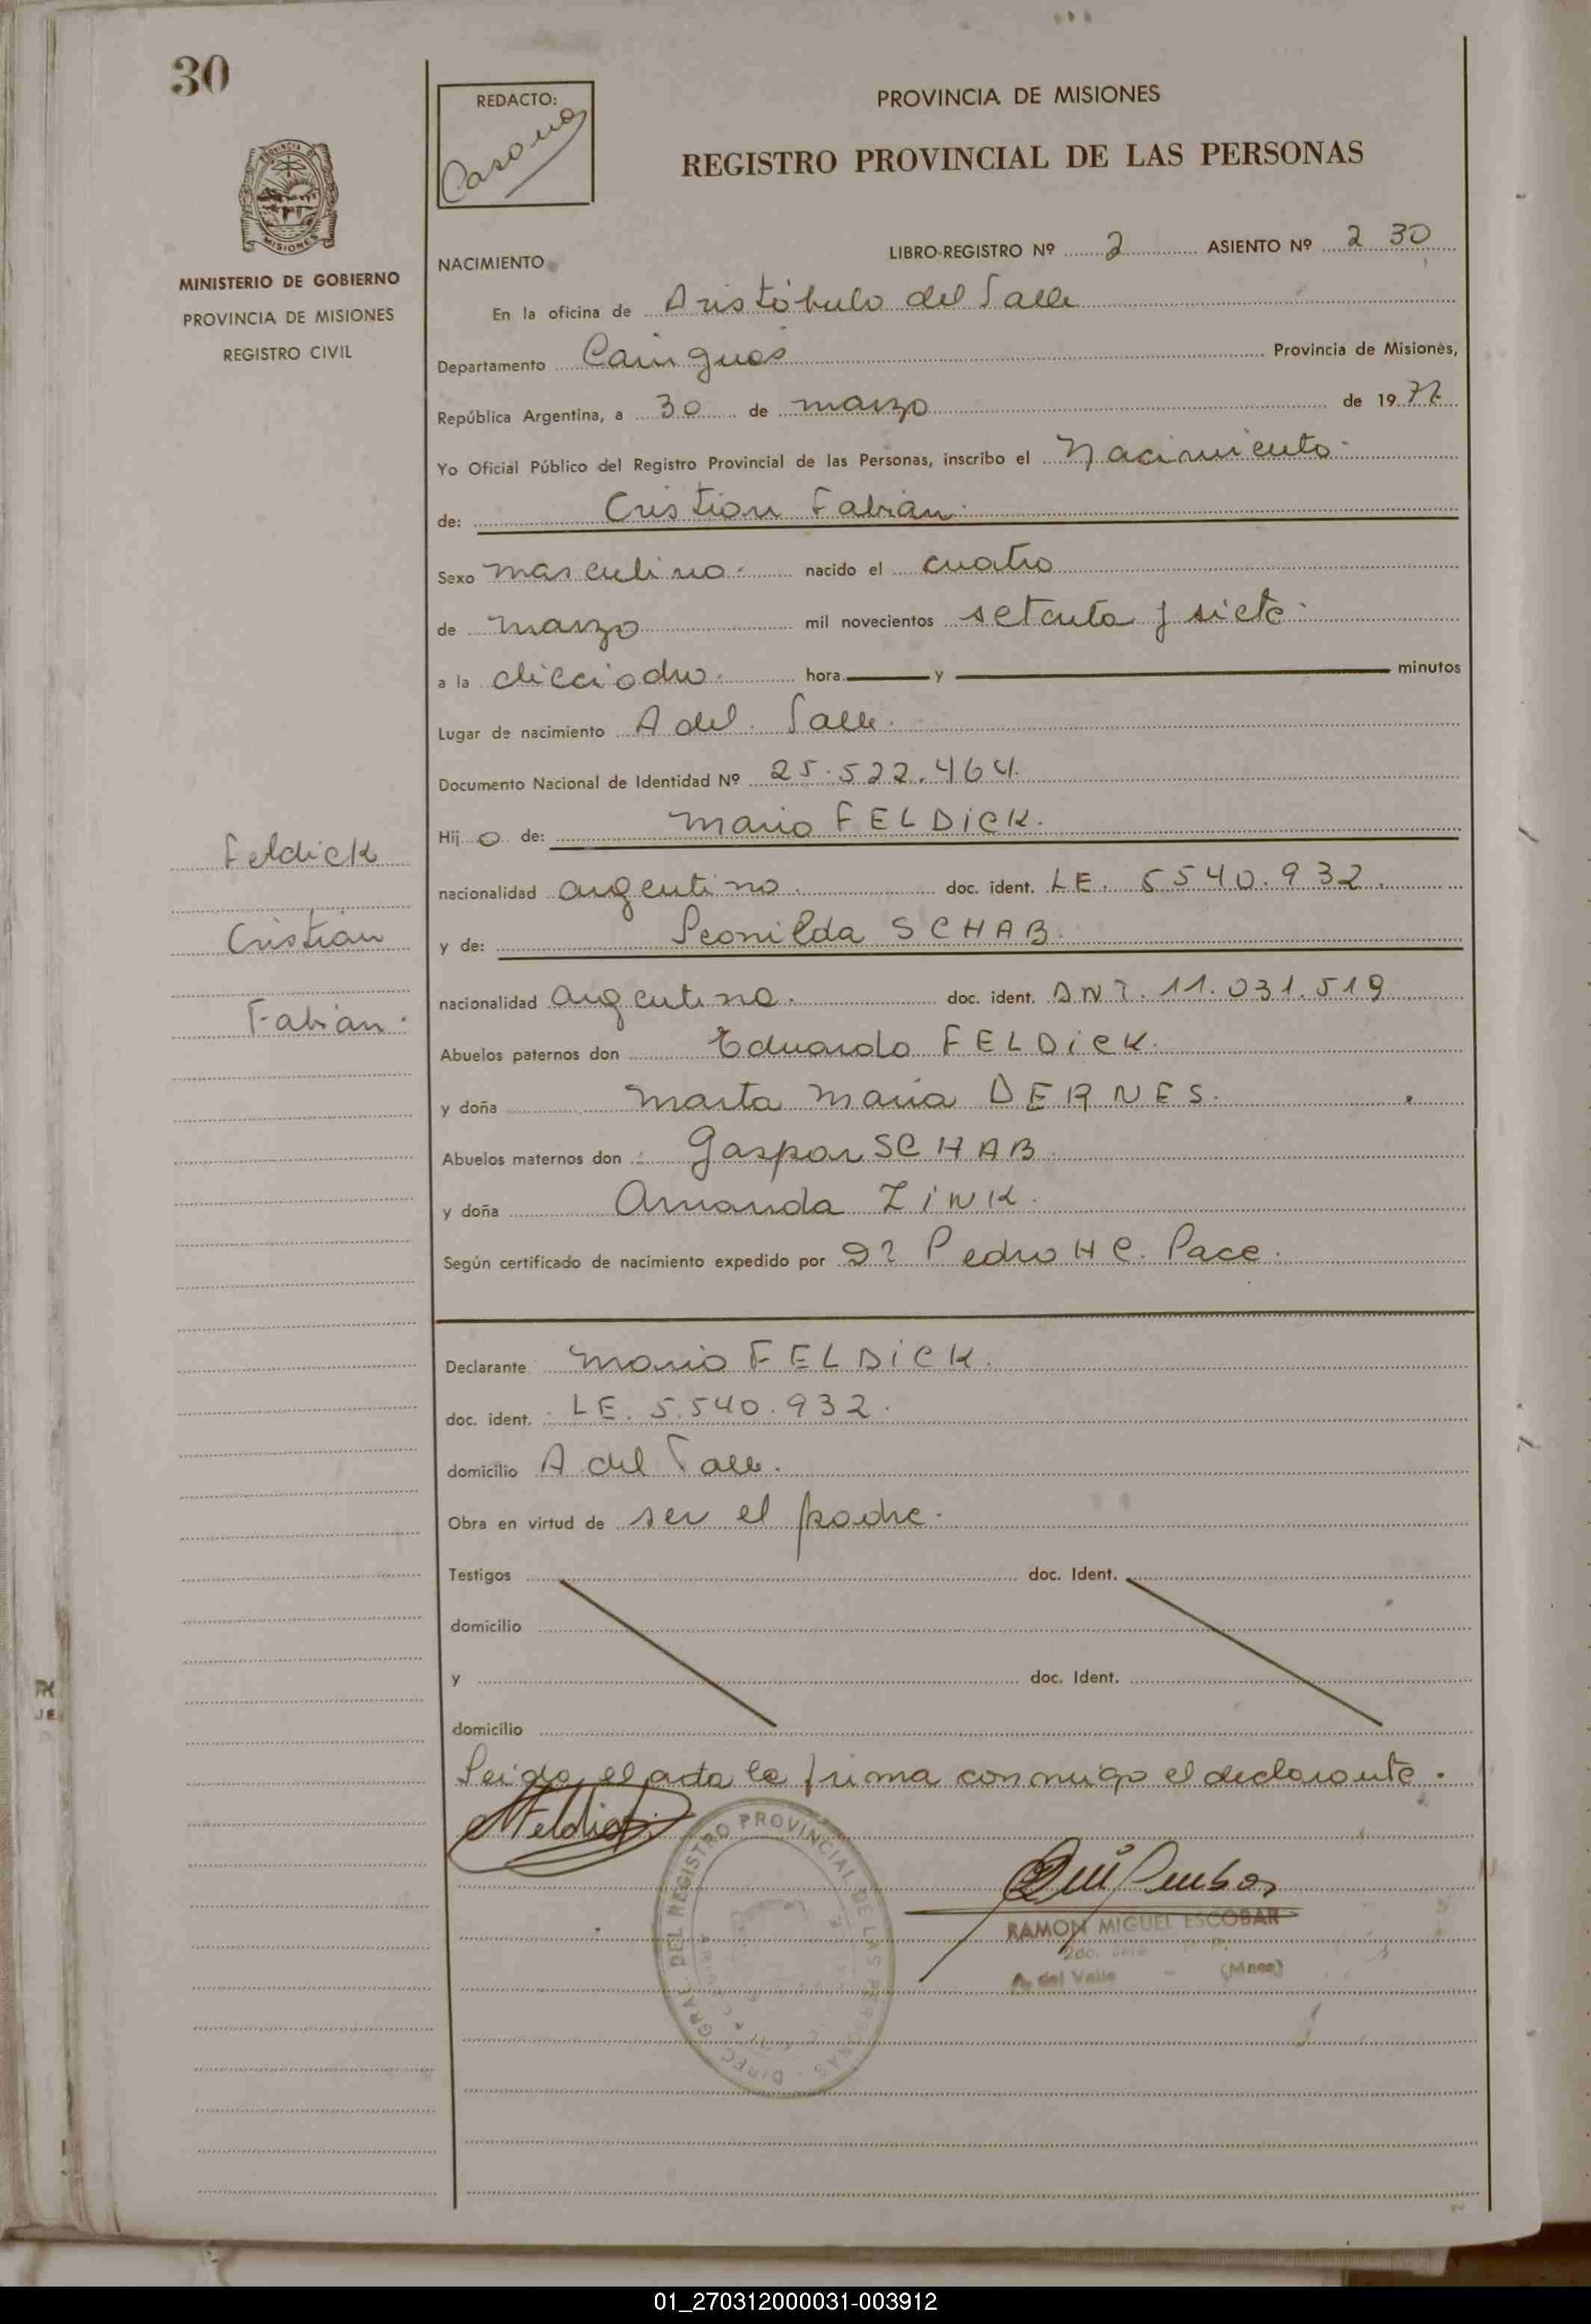 30
REDACTO:
PROVINCIA DE MISIONES
REGISTRO PROVINCIAL DE LAS PERSONAS
PROVINCIA DE
MISIONES
MINISTERIO DE GOBIERNO
PROVINCIA DE MISIONES
REGISTRO CIVIL
LIBRO-REGISTRO Nº 2 ASIENTO Nº 2 30
NACIMIENTO
En la oficina de Aristóbulo del Valle
Departamento Cainguás Provincia de Misiones,
República Argentina, a 30 de marzo de 1977
Yo Oficial Público del Registro Provincial de las Personas, inscribo el Nacimiento
de: Cristian Fabián.
Sexo masculino. nacido el cuatro
de marzo mil novecientos setenta y siete.
a la dieciocho. hora y minutos
Lugar de nacimiento A del Valle.
Documento Nacional de Identidad Nº 25.522.464.
Hij o de: Mario FELDICK.
nacionalidad argentino. doc. ident. LE. 5540.932.
y de: Leonilda SCHAB.
nacionalidad argentina. doc. ident. DNI. 11.031.519
Abuelos paternos don Eduardo FELDICK.
y doña Marta Maria DERNES.
Abuelos maternos don Gaspar SCHAB.
y doña Amanda ZINK.
Según certificado de nacimiento expedido por Dr Pedro H C. Pace.
Feldick
Cristian
Fabián.
Declarante Mario FELDICK.
doc. ident. LE. 5.540.932.
domicilio A del Valle.
Obra en virtud de ser el padre.
Testigos doc. Ident.
domicilio
y doc. Ident.
domicilio
Leida el acta la firma conmigo el declarante.
MFeldick
DIREC. GRAL. DEL REGISTRO PROVINCIAL DE LAS PERSONAS
RAMON MIGUEL ESCOBAR
A. del Valle - (Mnes)
01_270312000031-003912